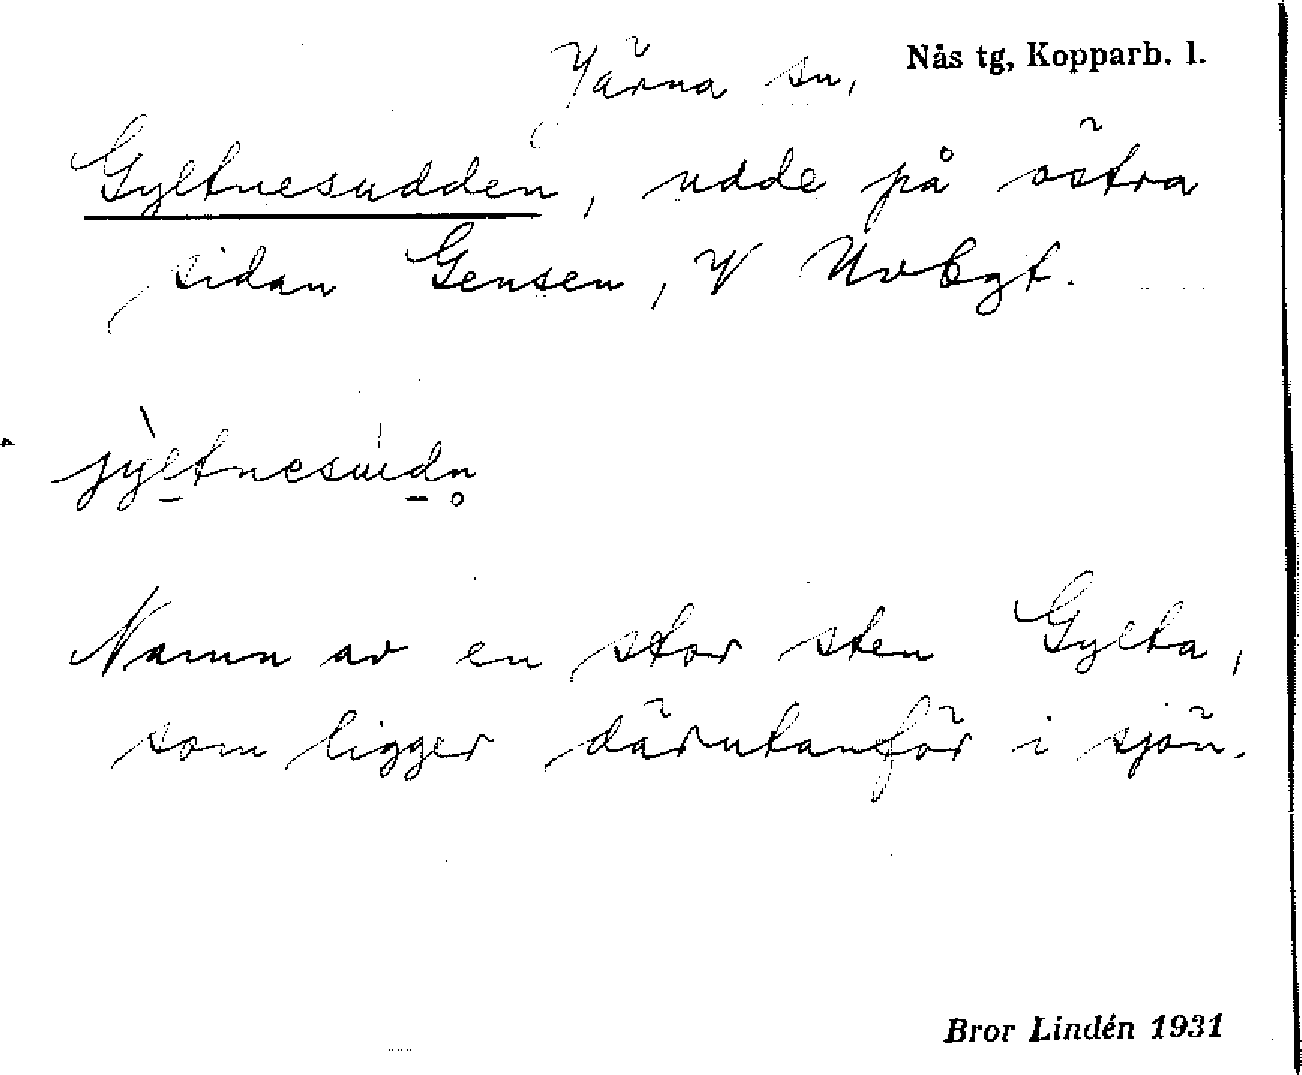 Järna sn, Nås tg, Kopparb. l.
Gyltnesudden, udde på östra
sidan Gensen, V
Namn av en stor sten Gylta,
som ligger därutanför i sjön.
Bror Lindén 1931